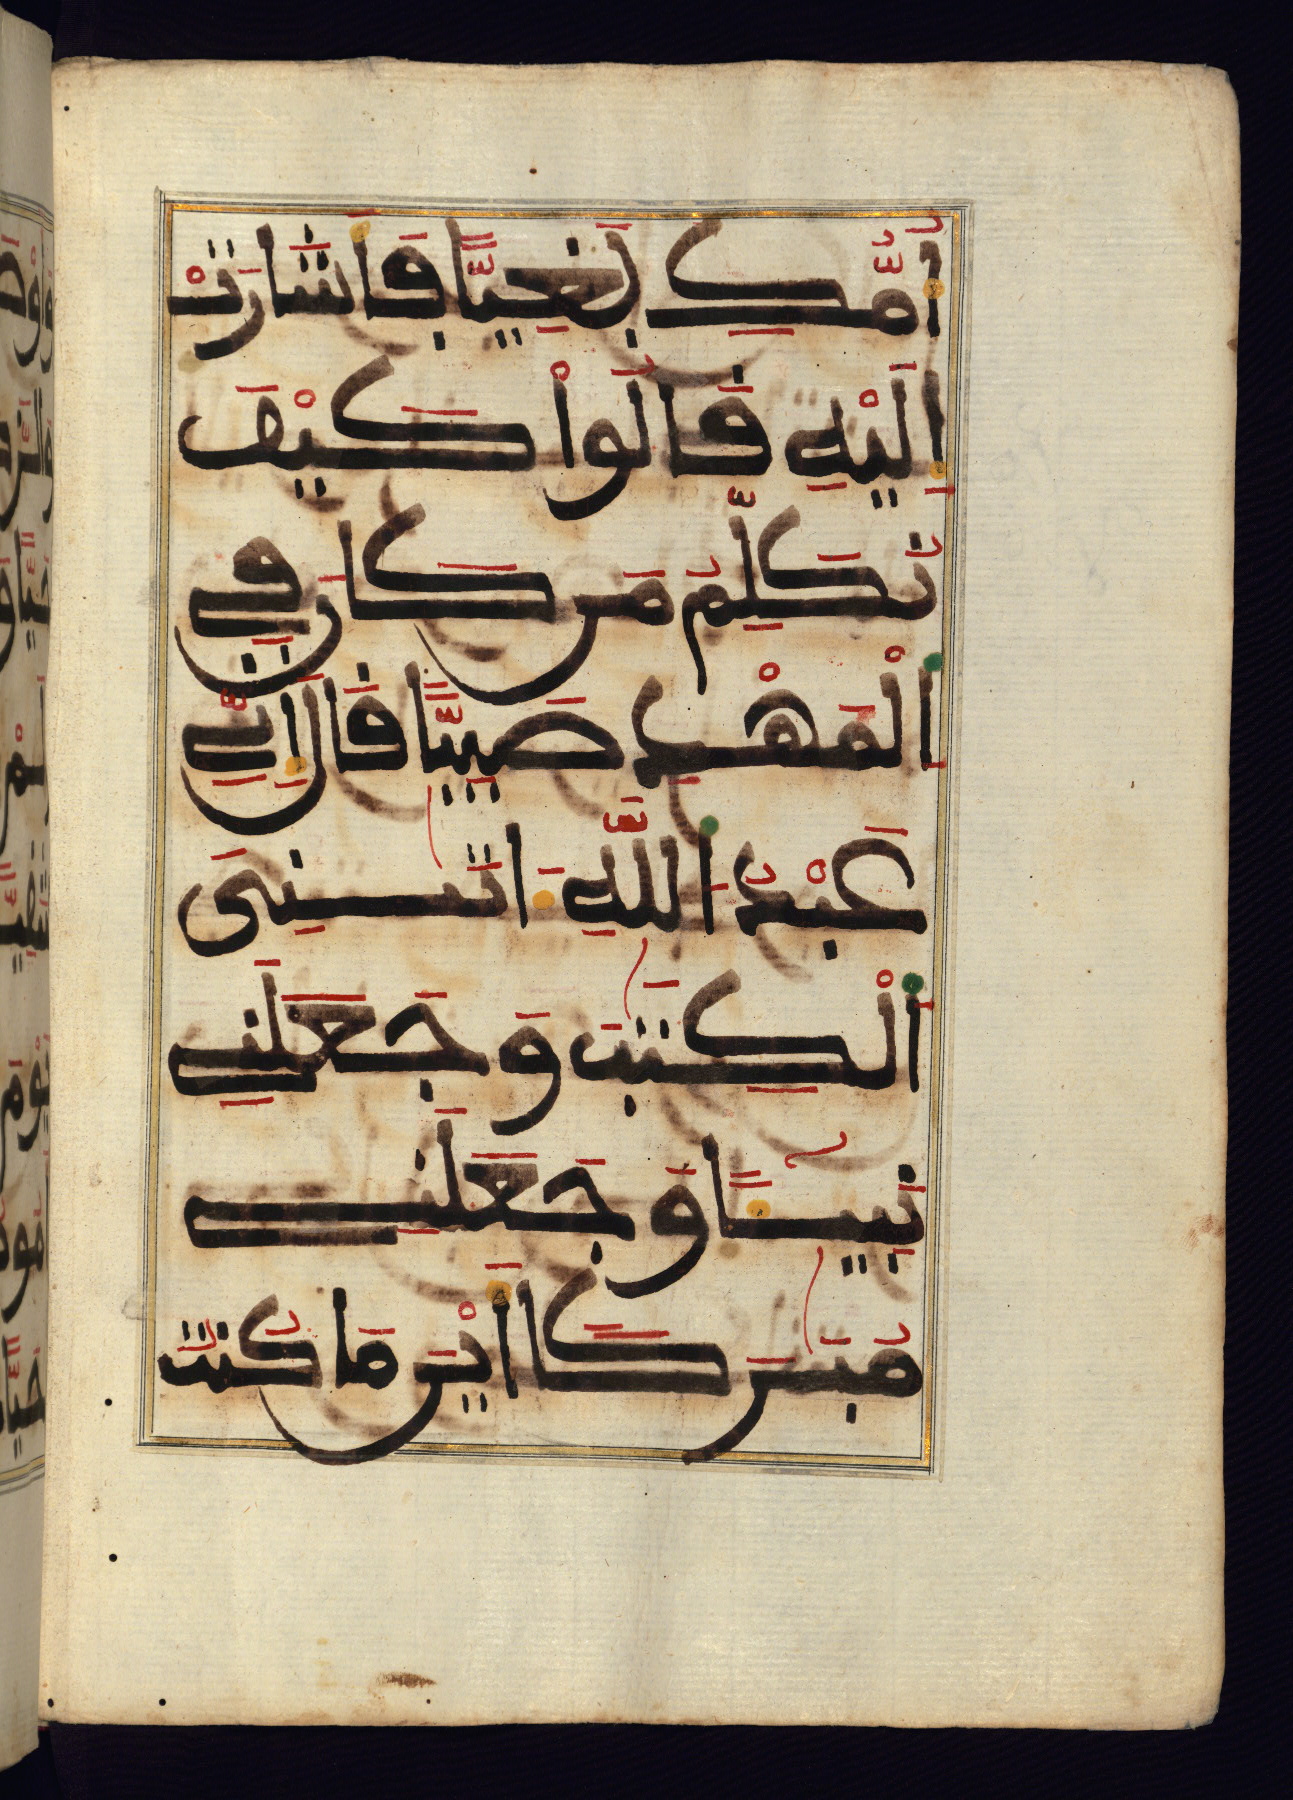 أُمُّكِ بَغِيًّا فَأَشَارَتْ
إِلَيْهِ قَالُواْ كَيْفَ
نُكَلِّمُ مَن كَانَ فِي
الْمَهْدِ صَبِيًّا قَالَ إِنِّي
عَبْدُ اللَّهِ ءَاتَيٰنِيَ
الْكِتَٰبَ وَجَعَلَنِي
نَبِيٓـًٔا وَجَعَلَنِي
مُبَٰرَكًا أَيْنَ مَا كُنتُ